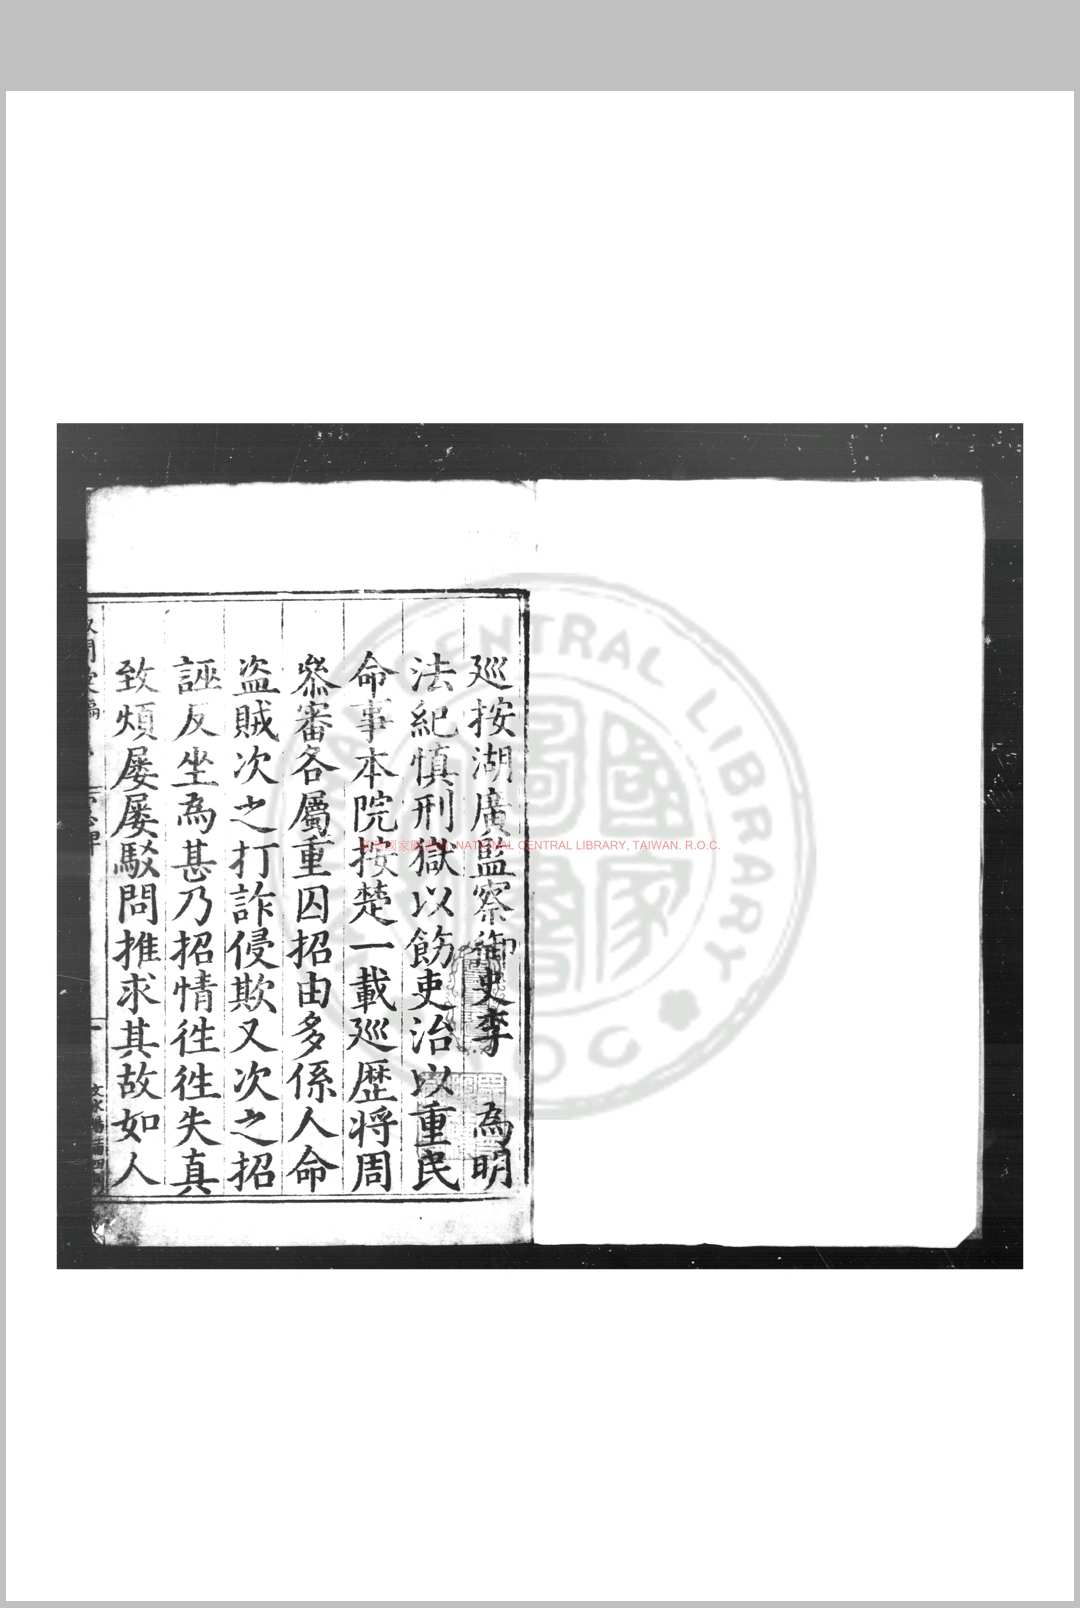 廵按湖廣監察御史李　為明
法紀慎刑獄以飭吏治以重民
命事本院按楚一載廵歷將周
叅審各屬重囚招由多係人命
盜賊次之打詐侵欺又次之招
誣反坐為甚乃招情徃徃失真
致煩屢屢駁問推求其故如人
NATIONAL CENTRAL LIBRARY, TAIWAN. R.O.C.
CENTRAL LIBRARY
R.O.C